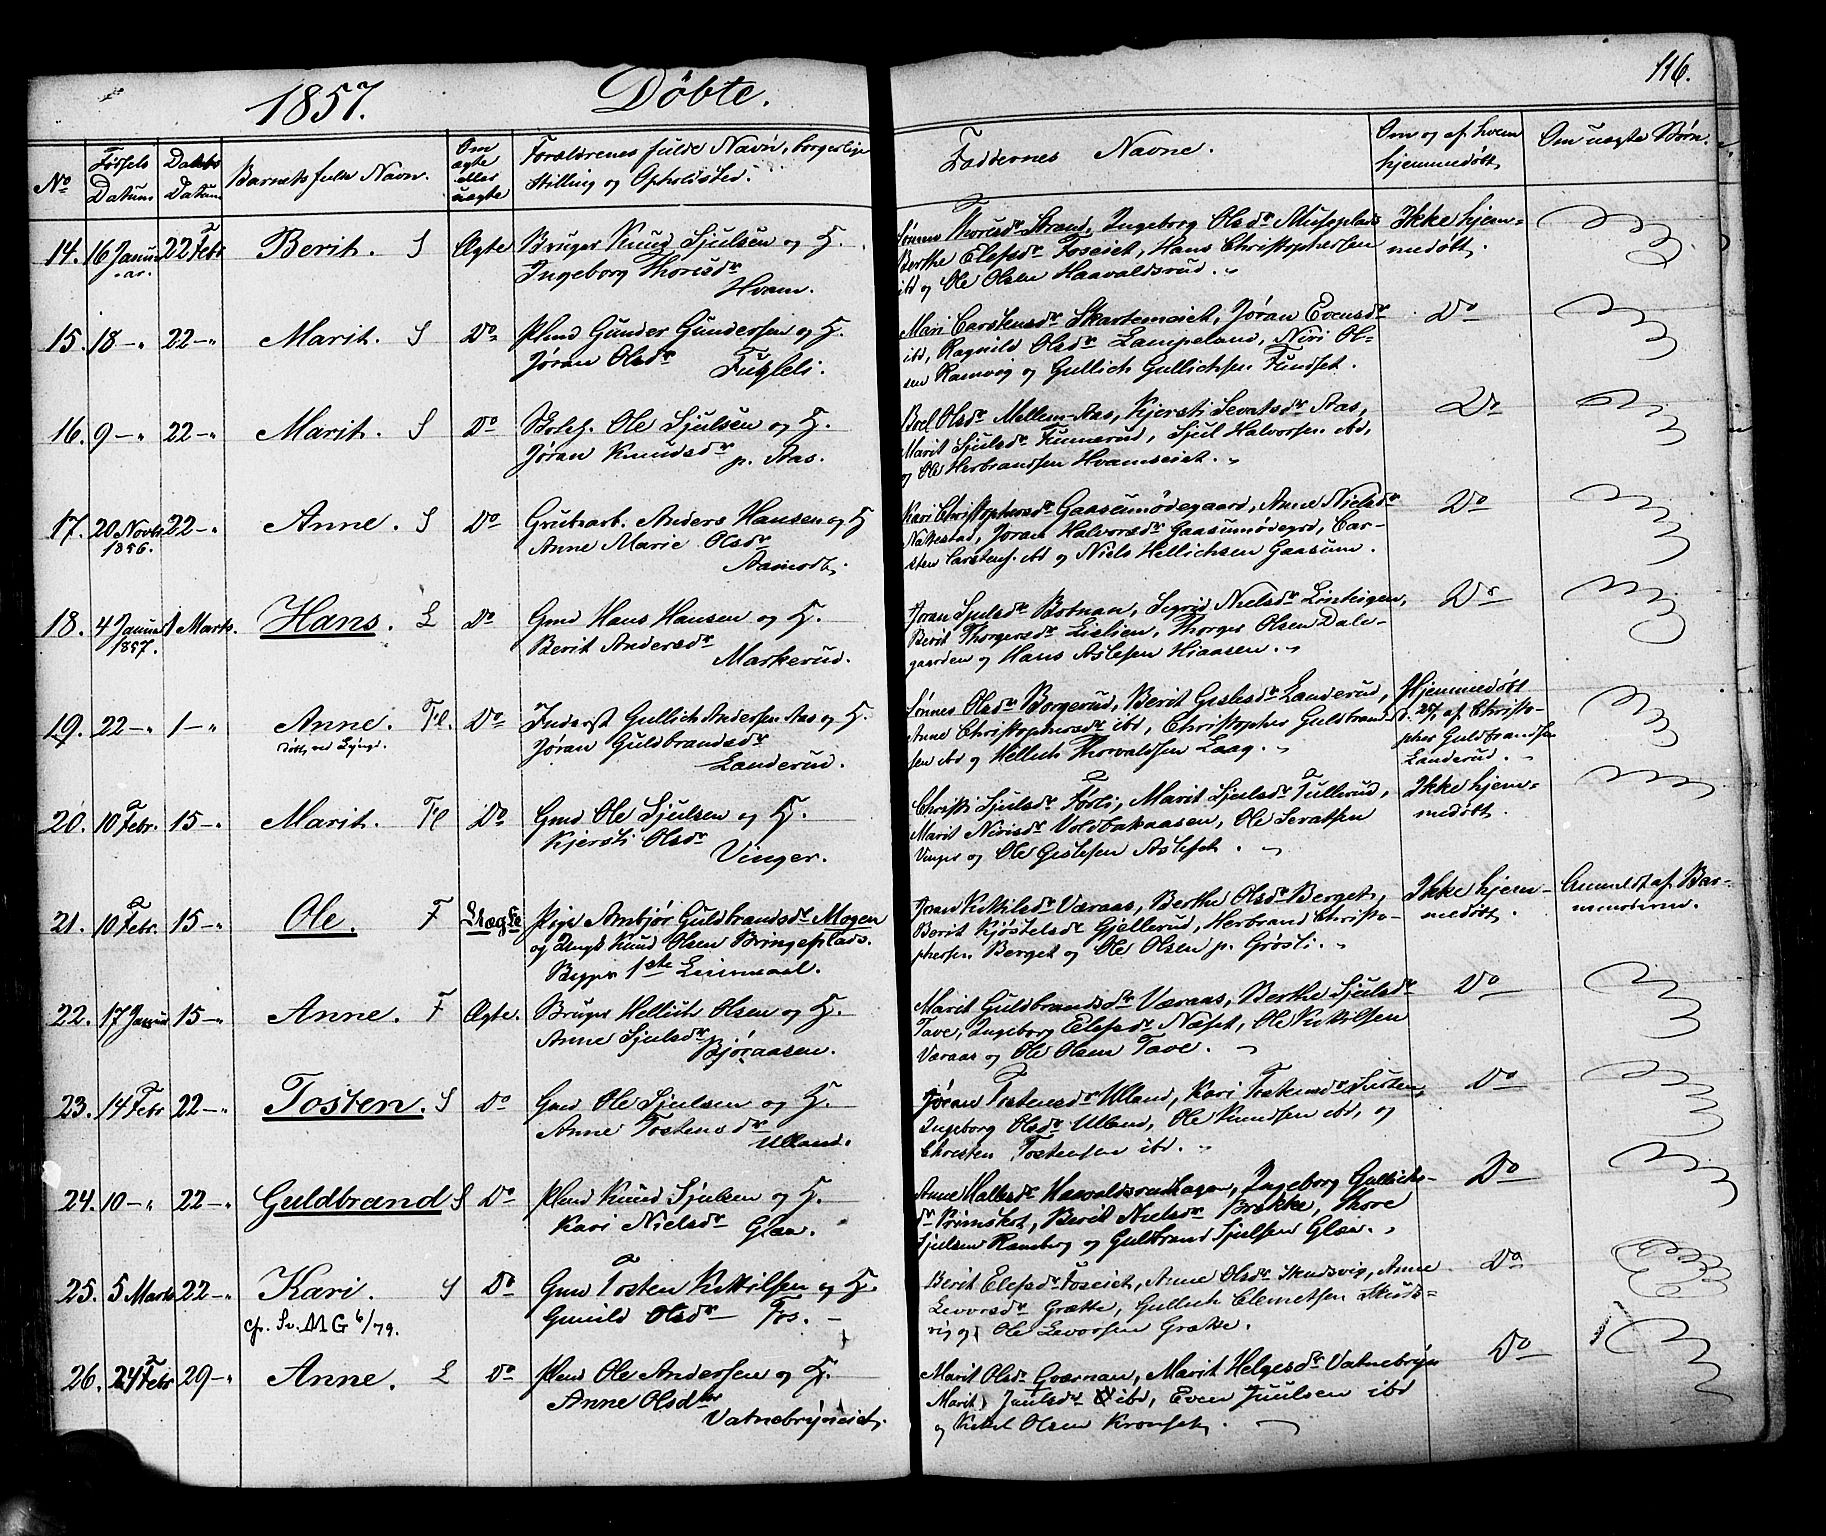 116.
1857. Döbte.
No
Födsels Datum
Daabs Datum
Barnets fulde Navn.
Om ægte eller uægte
Forældrenes fulde Navn, borgerlige
Stilling og Opholdsted.
Faddernes Navne.
Om og af hvem
hjemmedöbt
Om uægte Börn.
14. 16 Januar 22 Febr Berit. S Ægte Bruger Knud Sjulsen og H.
Ingeborg Thorisdr
Hvam.
Thorisdr Strand, Ingeborg Olsdr
Berthe Elefsdr Foseiet, Hans Christophersen
ibd og Ole Olsen Haavaldsrud.
Ikke hjem-
medöbt.
15. 18 -„ 22 -„ Marit. S Do Plmd Gunder Gundersen og H.
Jøran Olsdr
Mari Carstensdr Skartemeiet, Jøran Evensdr
ibd, Ragnild Olsdr Lampeland, Niri Ol-
sen Ramvig og Gullich Gullichsen Fundset.
Do
16. 9 -„ 22 -„ Marit. S Do Ole Sjulsen og H.
Jøran Knudsdr p. Aas.
Boel Olsdr Mellem-Aas, Kjersti Sevatsdr Aas,
Marit Sjulsdr Sjul Halvorsen ibd,
og Ole Herbrandsen Hvamseiet.
Do
17. 20 Novbr 1856. 22 -„ Anne. S Do Grubearb. Anders Hansen og H
Anne Marie Olsdr
Aamodt.
Kari Christophersdr Gaasumødegaard, Anne Nielsdr
Nakkestad, Jøran Halvorsdr Gaasumødegrd, Car-
sten Carstens. ibd og Niels Hellichsen Gaasum.
Do
18. 4 Januar 1857. 1 Marts. Hans. L Do Gmd Hans Hansen og H.
Berit Andersdr
Markerud.
Jøran Sjulsdr Botnan, Sigrid Nielsdr
Berit Thorgersdr Lislien, Thorger Olsen Dale-
gaarden og Hans Aslesen Hiaasen.
Do
19. 22 -„ 1 -„ Anne. Fl. Do Inderst Gullich Andersen Aas og H.
Jøran Guldbrandsdr
Landerud.
Sønnev Olsdr Borgerud, Berit Gislesdr Landerud,
Anne Christophersdr ibd, Christopher Guldbrand-
sen ibd og Hellich Thorvaldsen Laag.
Hjemmedöbt
af Christo-
pher Guldbrandsen
Landerud.
20. 10 Febr. 15 -„ Marit. Fl Do Gmd Ole Sjulsen og H.
Kjersti Olsdr
Vinger.
Christi Sjulsdr Førli, Marit Sjulsdr Tullerud,
Marit Nirisdr Voldbakaasen, Ole Sevatsen
Vinger og Ole Gislesen Aslefet.
Ikke hjem-
medöbt.
21. 10 Febr. 15 -„ Ole. F Uægte Pige Ambjør Guldbrandsdr Mogen
og Ungk Knud Olsen Bringeplads.
Begges 1ste Leiermaal.
Jøran Kittilsdr Væraas, Berthe Olsdr Berget,
Berit Kjøstelsdr Gjellerud, Herbrand Christo-
phersen Berget og Ole Olsen p. Grøsli.
Ikke hjem-
medöbt.
Anmeldt af Bar-
nemoderen.
22. 17 Januar 15 -„ Anne. F Ægte. Bruger Hellich Olsen og H.
Anne Sjulsdr
Bjøraasen.
Marit Guldbrandsdr Væraas, Berthe Sjulsdr
Tave, Ingeborg Elefsdr Næset, Ole Kittilsen
Væraas og Ole Olsen Tave.
Do
23. 14 Febr 22 -„ Tosten. S Do Gmd Ole Sjulsen og H.
Anne Tostensdr
Ulland.
Jøran Tostensdr Ulland, Kari Tostensdr
Ingeborg Olsdr Ulland, Ole Knudsen ibd, og
Christen Tostensen ibd.
Do
24. 10 -„ 22 -„ Guldbrand S Do Plmd Knud Sjulsen og H.
Kari Nielsdr Glæa.
Anne Hallesdr Ingeborg Gullichs-
dr Primskot, Berit Nielsdr Brekke, Thore
Sjulsen Ramberg og Guldbrand Sjulsen Glæa.
Do
25. 5 Marts 22 -„ Kari. S Do Gmd Tosten Kittilsen og H.
cfr. Sv. MG 6/79.
Gunild Olsdr Fos.
Berit Elefsdr Foseiet, Anne Olsdr Skudsvig, Anne
Levorsdr Grætte, Gullich Clemetsen Skuds-
vig og Ole Levorsen Grætte.
Do
26. 24 Febr 29 -„ Anne. L Do Plmd Ole Andersen og H.
Anne Olsdtr
Vatnebrynseiet.
Marit Olsdr Marit Helgesdr Vatnebryn
Marit Juulsdr ibd, Even Juulsen ibd
og Kittil Olsen Kronset.
Do